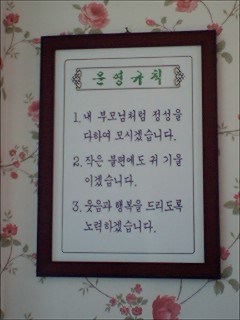 운영규칙
1. 내 부모님처럼 정성을
다하여 모시겠습니다.
2. 작은 불편에도 귀 기울
이겠습니다.
3. 웃음과 행복을 드리도록
노력하겠습니다.